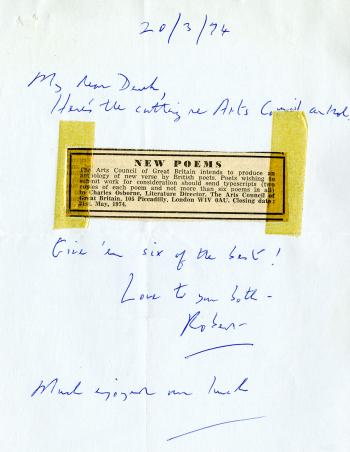 20/3/74
My dear Derek,
Here's the cutting re Arts Council anthol.
NEW POEMS
The Arts Council of Great Britain intends to produce an
anthology of new verse by British poets. Poets wishing to
submit work for consideration should send typescripts (two
copies of each poem and not more than six poems in all)
to Charles Osborne, Literature Director, The Arts Council of
Great Britain, 105 Piccadilly, London W1V 0AU. Closing date:
31st. May, 1974.
Give 'em six of the best!
Love to you both -
Robert
Much enjoyed our lunch